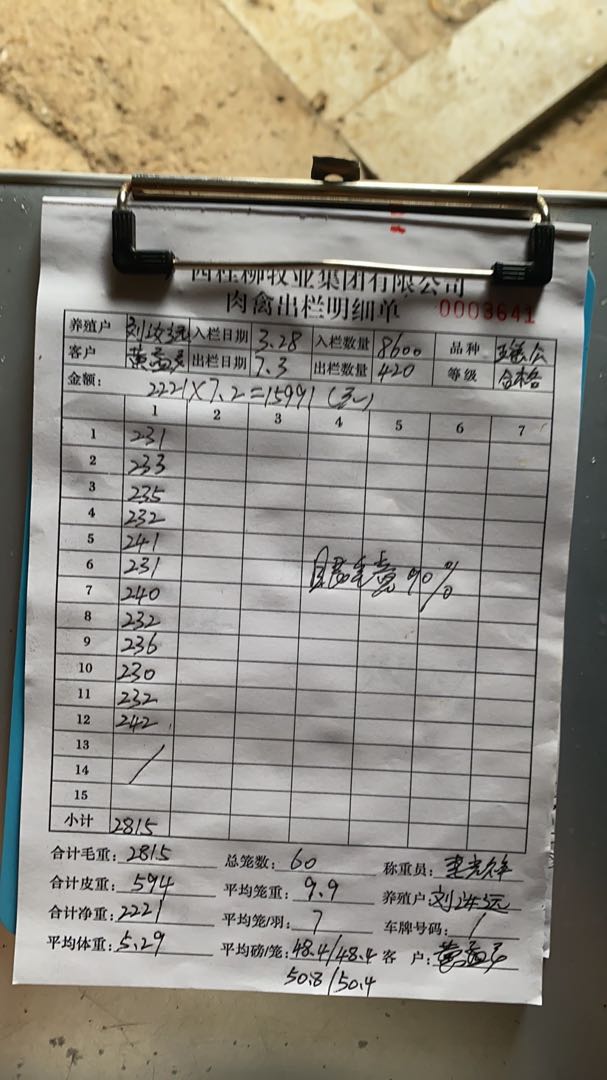 西桂柳牧业集团有限公司
肉禽出栏明细单 0003641
养殖户 入栏日期 3.28 入栏数量 8600 品种
客户 出栏日期 7.3 出栏数量 420 等级 合格
金额: 2221×7.2=15991
1 2 3 4 5 6 7
1 231
2 233
3 235
4 232
5 241
6 231 90%
7 240
8 232
9 236
10 230
11 232
12 242
13
14 /
15
小计 2815
合计毛重: 2815 总笼数: 60 称重员:
合计皮重: 594 平均笼重: 9.9 养殖户:
合计净重: 2221 平均笼/羽: 7 车牌号码: /
平均体重: 5.29 平均磅/笼: 48.4/48.4 客 户:
50.8/50.4